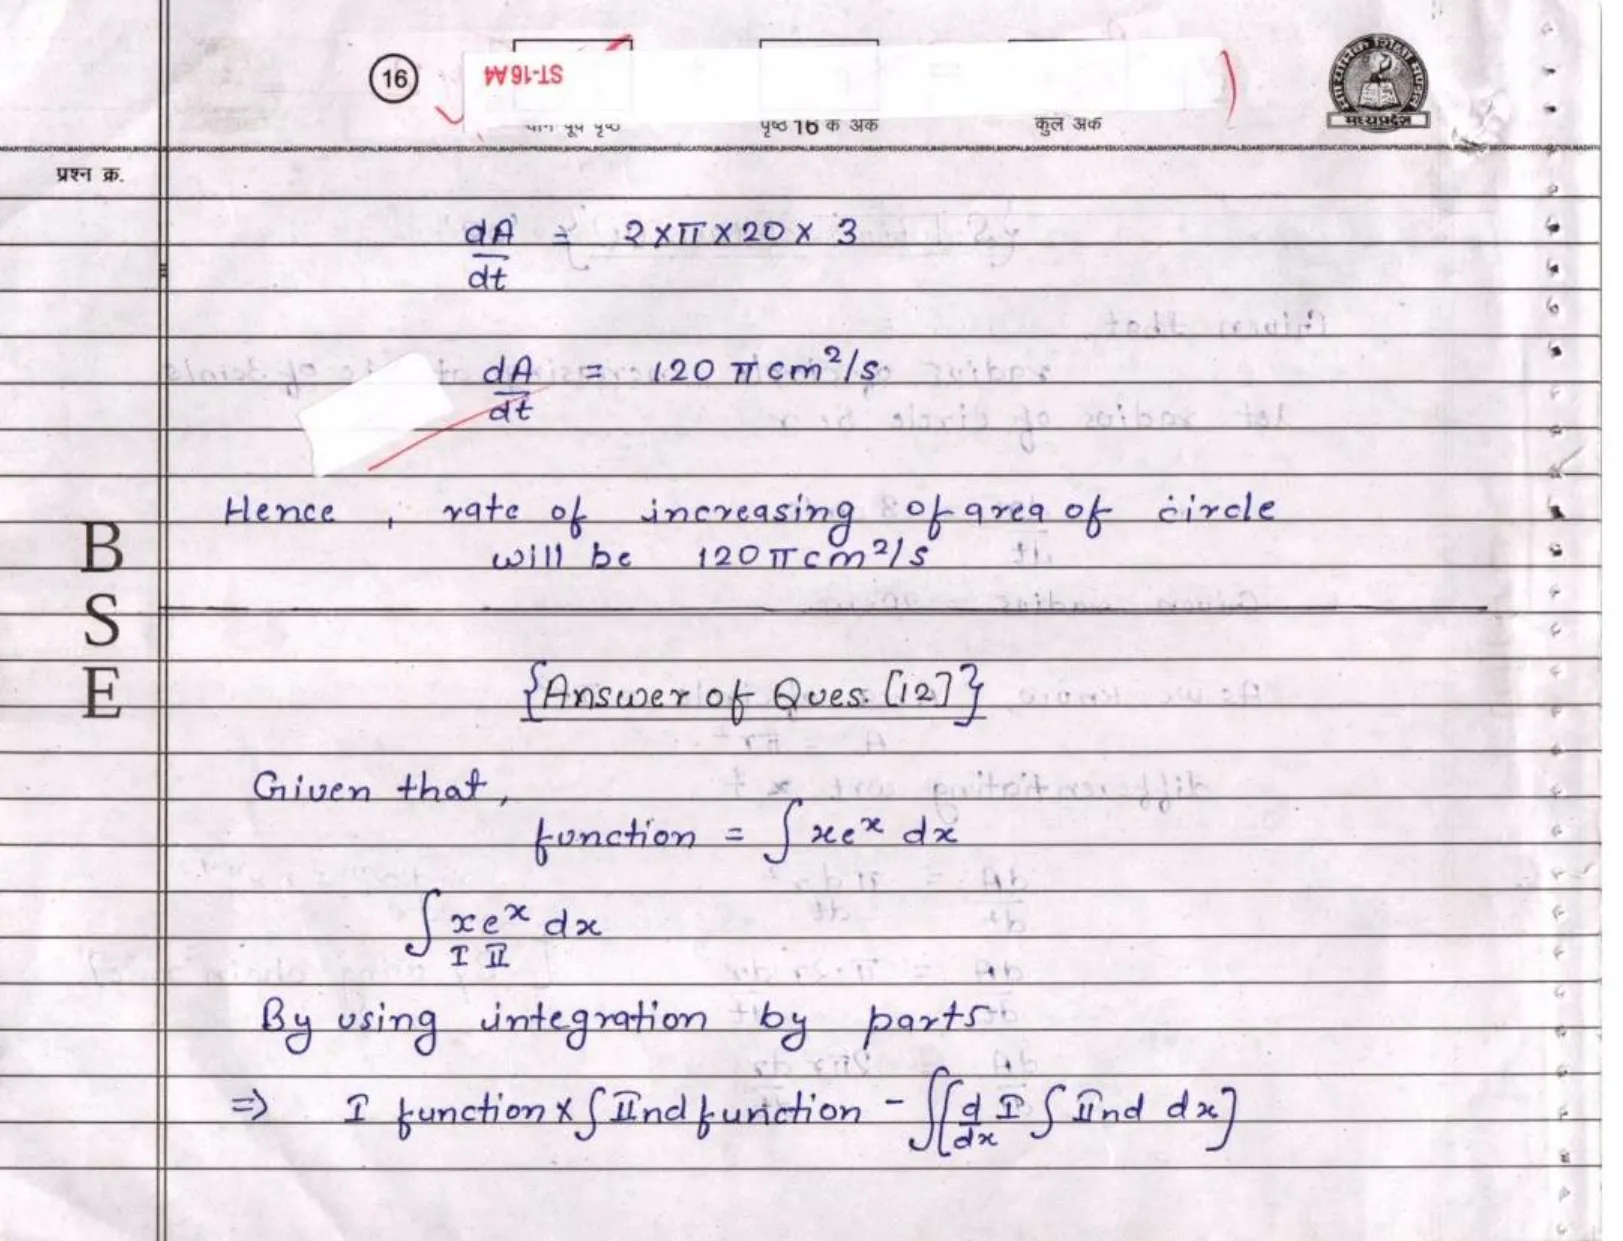 16
ST-16A4
पृष्ठ 16 के अंक
कुल अंक
मध्यप्रदेश
प्रश्न क्र.
dA/dt = 2 × π × 20 × 3
dA/dt = 120 π cm²/s
Hence, rate of increasing of area of circle
will be 120 π cm²/s
B
S
E
{Answer of Ques. [12]}
Given that,
function = ∫ xeˣ dx
∫ xeˣ dx
I II
By using integration by parts
⇒ I function × ∫ IInd function - ∫[d/dx I ∫ IInd dx]